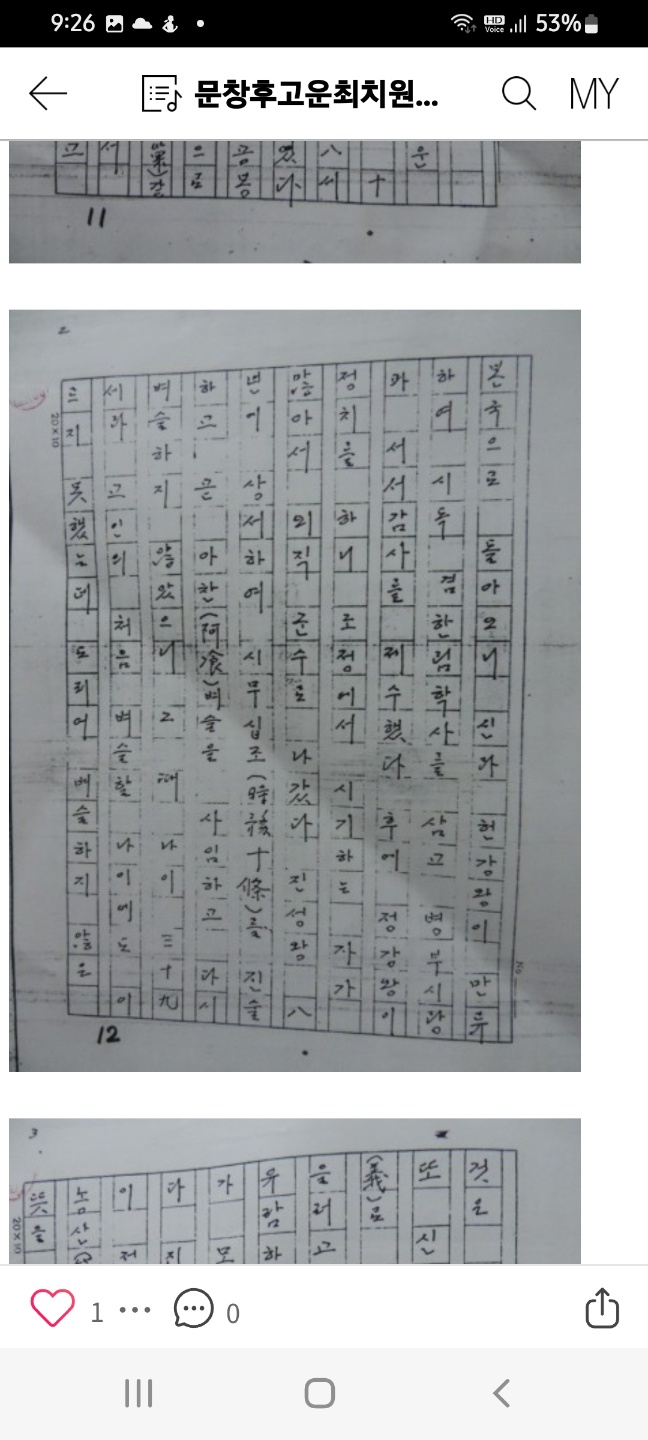 9:26
HD Voice
53%
문창후고운최치원...
MY
운
十
八세
었다
공봉
으로
서
고
11
2
본국으로 돌아오니 신라 헌강왕이 만류
하여 시독 겸 한림학사를 삼고 병부시랑
과 서서감사를 제수했다 후에 정강왕이
정치를 하니 조정에서 시기하는 자가
많아서 외직 군수로 나갔다 진성왕 八
년에 상서하여 시무십조(時務十條)를 진술
하고, 곧 아찬(阿飡)벼슬을 사임하고 다시
벼슬하지 않았으니 그때 나이 三十九
세라 고인의 처음 벼슬할 나이에도 이
르지 못했는데 도리어 벼슬하지 않은
20×10
12
3
것은
또 신
(義)로
을러고
유람하
가 모
다 진
이 저
뜻을
20×10
1
0